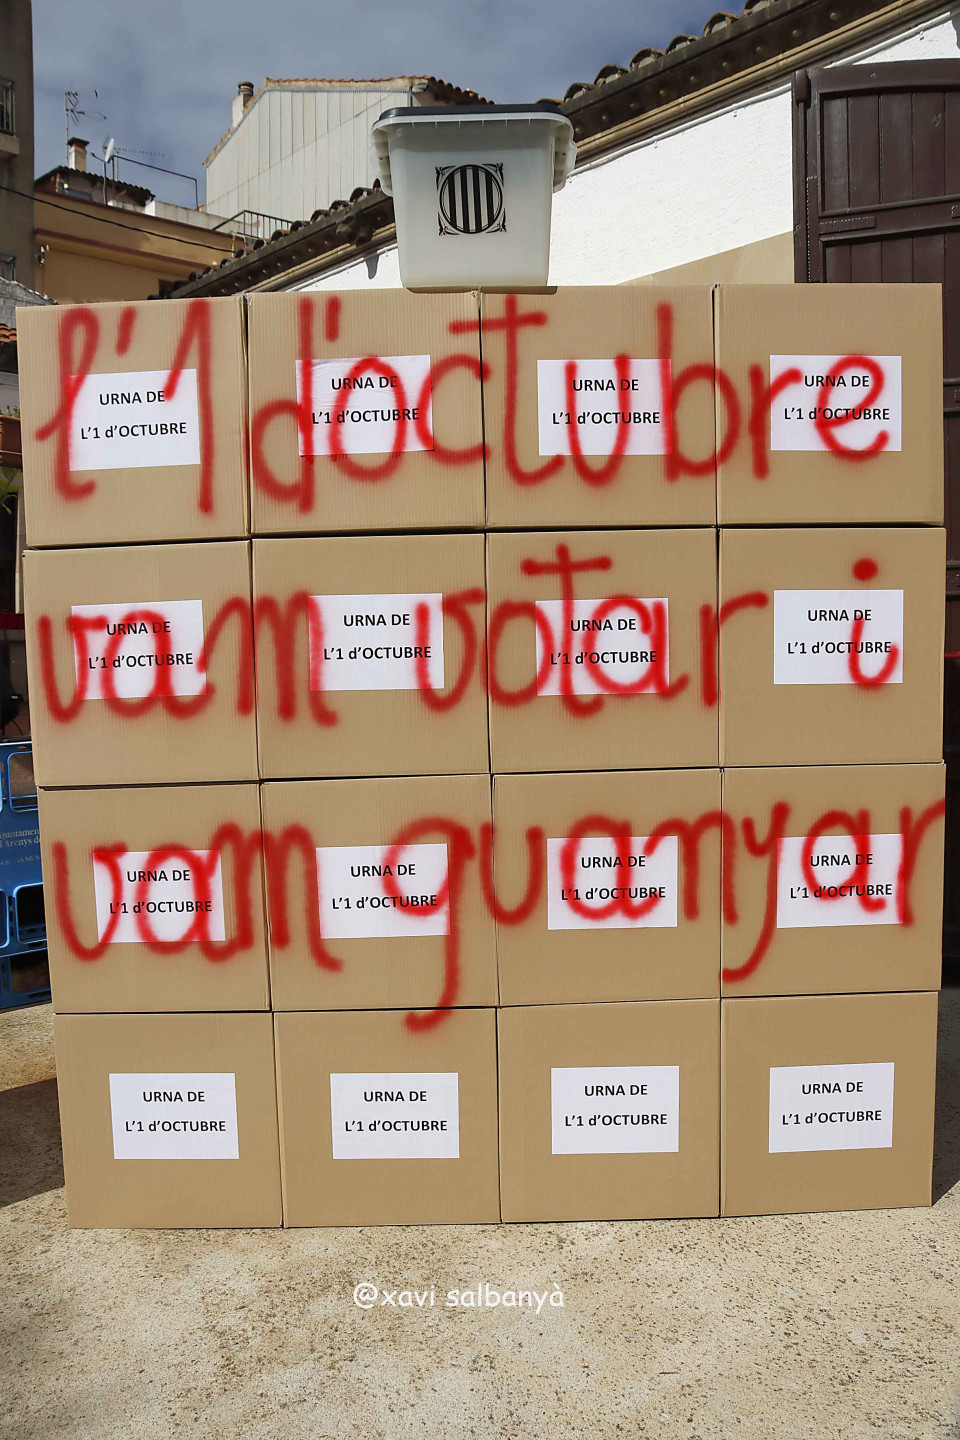 l'1 d'octubre
vam votar i
vam guanyar
URNA DE
L'1 d'OCTUBRE
URNA DE
L'1 d'OCTUBRE
URNA DE
L'1 d'OCTUBRE
URNA DE
L'1 d'OCTUBRE
URNA DE
L'1 d'OCTUBRE
URNA DE
L'1 d'OCTUBRE
URNA DE
L'1 d'OCTUBRE
URNA DE
L'1 d'OCTUBRE
URNA DE
L'1 d'OCTUBRE
URNA DE
L'1 d'OCTUBRE
URNA DE
L'1 d'OCTUBRE
URNA DE
L'1 d'OCTUBRE
URNA DE
L'1 d'OCTUBRE
URNA DE
L'1 d'OCTUBRE
URNA DE
L'1 d'OCTUBRE
URNA DE
L'1 d'OCTUBRE
@xavi salbanyà